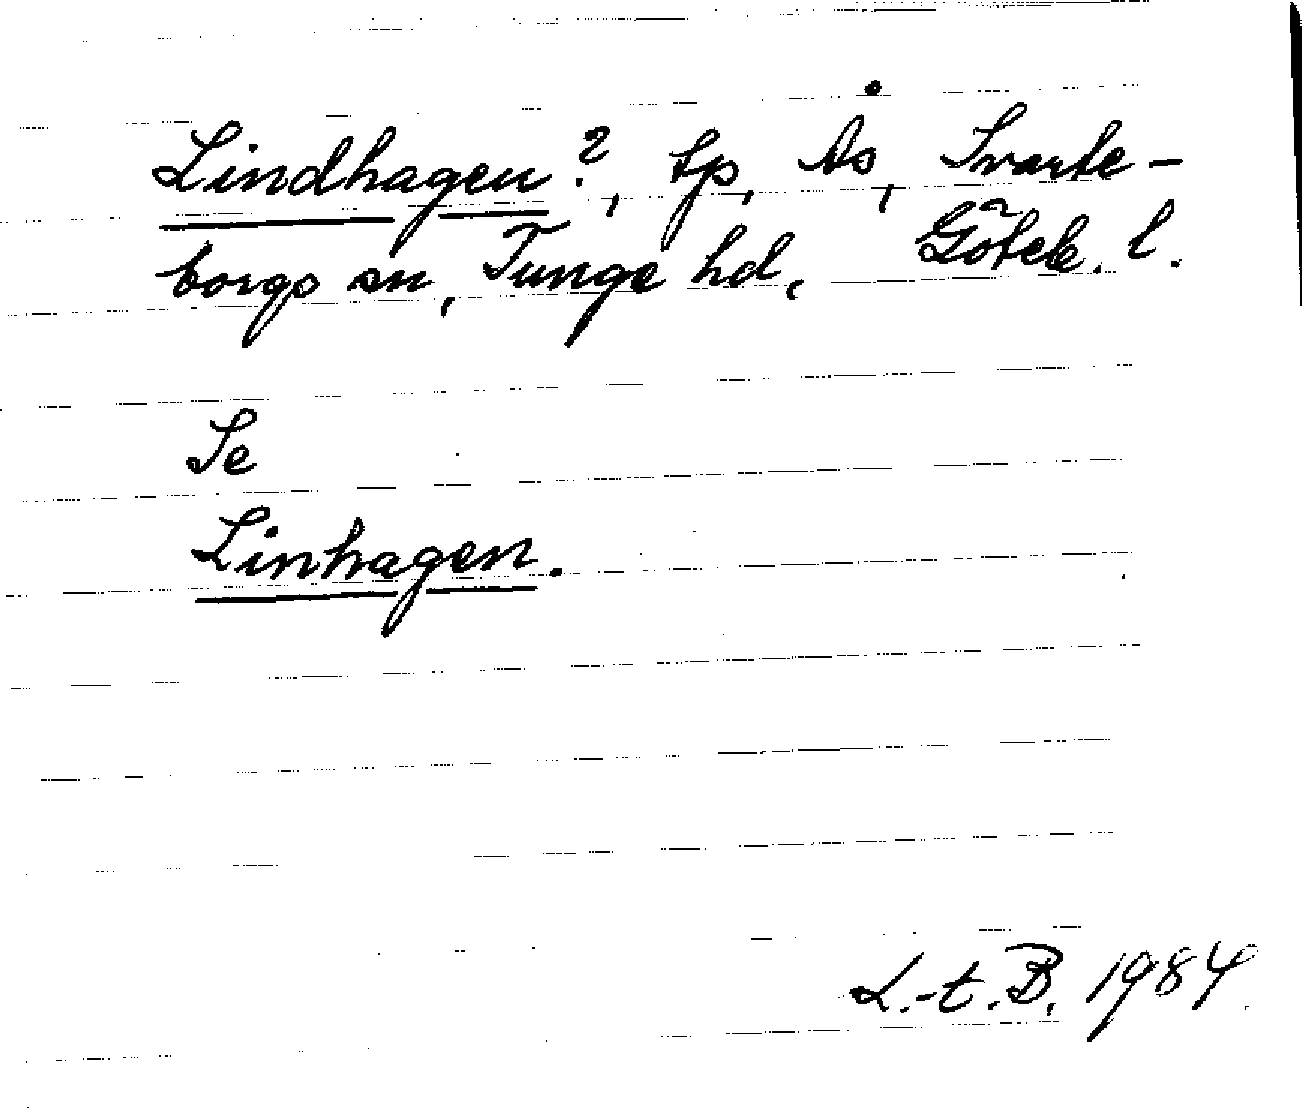 Lindhagen?, tp, Ås, Svarte-
borgs sn, Tunge hd, Göteb. l.
Se
Linhagen.
L.-t. B. 1984.